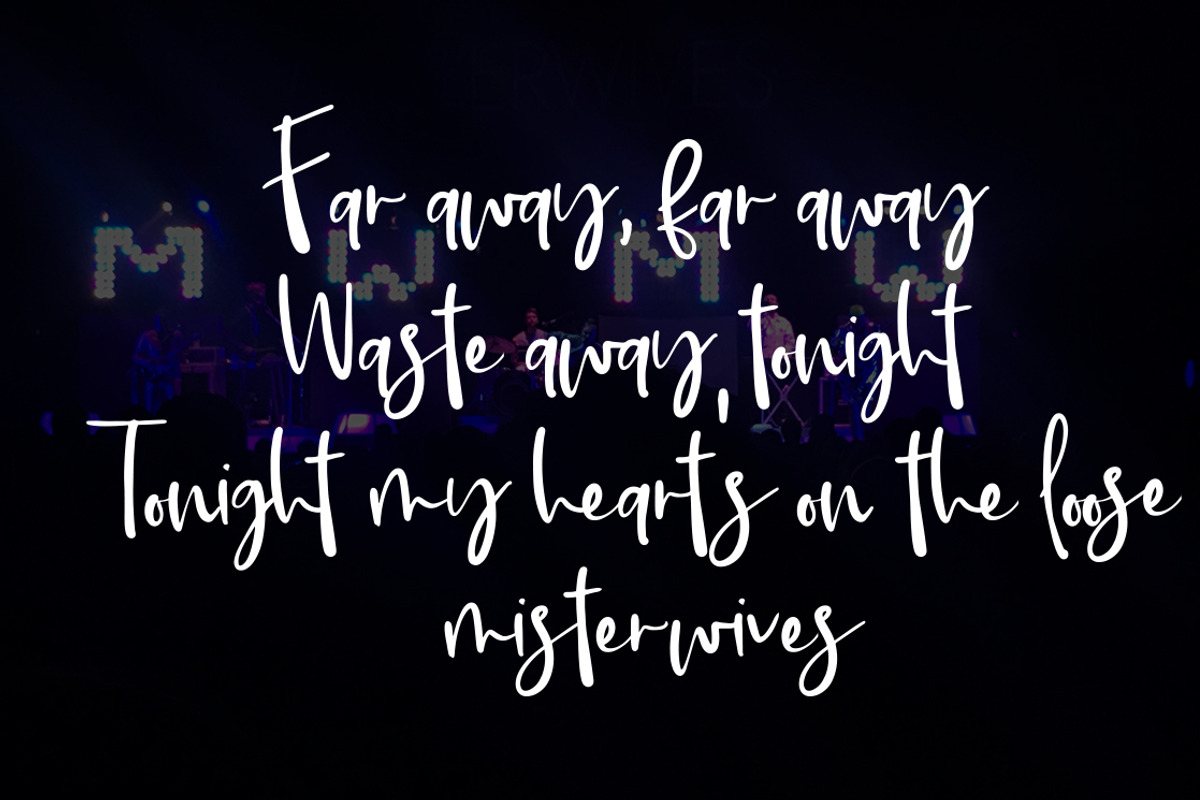 Far away, far away
Waste away, tonight
Tonight my heart's on the loose
misterwives
M W M W